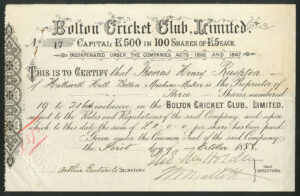 Bolton Cricket Club, Limited.
No. 17
CAPITAL £500 IN 100 SHARES OF £5 EACH.
INCORPORATED UNDER THE COMPANIES ACTS 1862 AND 1867.
THIS IS TO CERTIFY that Thomas Henry Rushton
of Halliwell Hall Bolton Machine-Maker is the Proprietor of
Shares numbered
19 to inclusive in the BOLTON CRICKET CLUB, LIMITED.
subject to the Rules and Regulations of the said Company and upon
which to this date the sum of £ per Share has been paid.
Given under the Common Seal of the said Company;
the First day of October 188
SECRETARY.
TWO DIRECTORS.